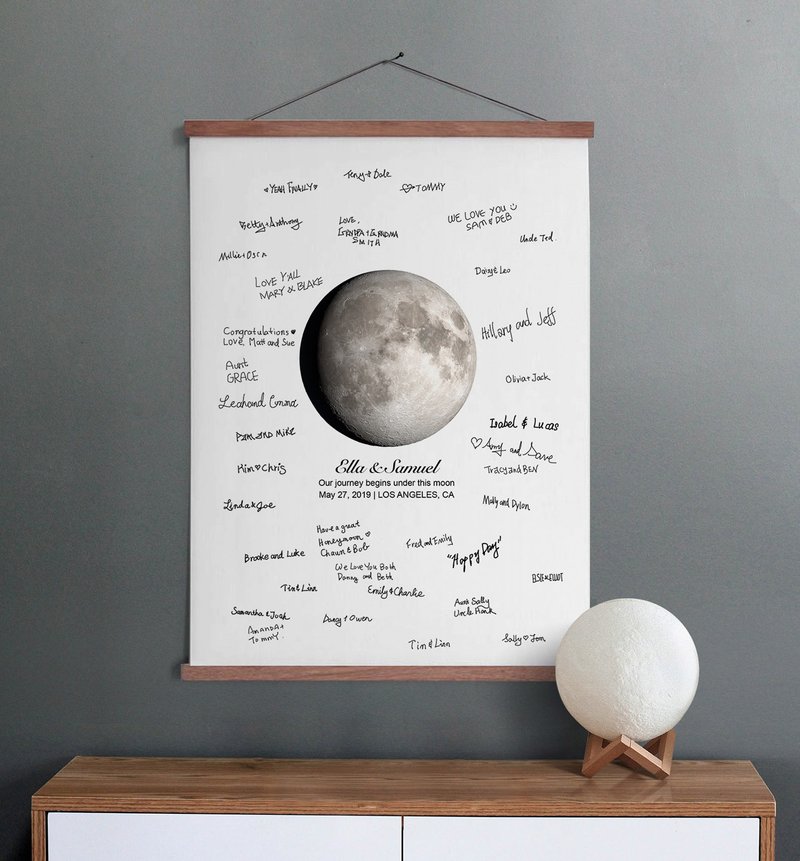 Tony & Dale
YEAH FINALLY
TOMMY
WE LOVE YOU
SAM & DEB
Betty + Anthony
LOVE,
GRANDPA + GRANDMA
SMITH
Uncle Ted.
Millie + Oscar
Daisy & Leo
LOVE Y'ALL
MARY & BLAKE
Hillary and Jeff
Congratulations ♥
Love, Matt and Sue
Aunt
GRACE
Olivia + Jack
Leah and Conna
Isabel & Lucas
PAM AND MIKE
♡ Amy and Save
Tracy and BEN
Kim ♥ Chris
Ella & Samuel
Our journey begins under this moon
May 27, 2019 | LOS ANGELES, CA
Linda & Joe
Molly and Dylan
Have a great
Honeymoon ♡
Chaun & Bob
Fred and Emily
"Happy Day"
Brooke and Luke
We Love You Both
Danny and Beth
ELSIE & ELLIOT
Tin & Linn
Emily & Charlie
Aunt Sally
Uncle Hank
Samantha & Josh
Amanda +
Tommy.
Dang + Owen
Tin & Linn
Sally ♡ Jon